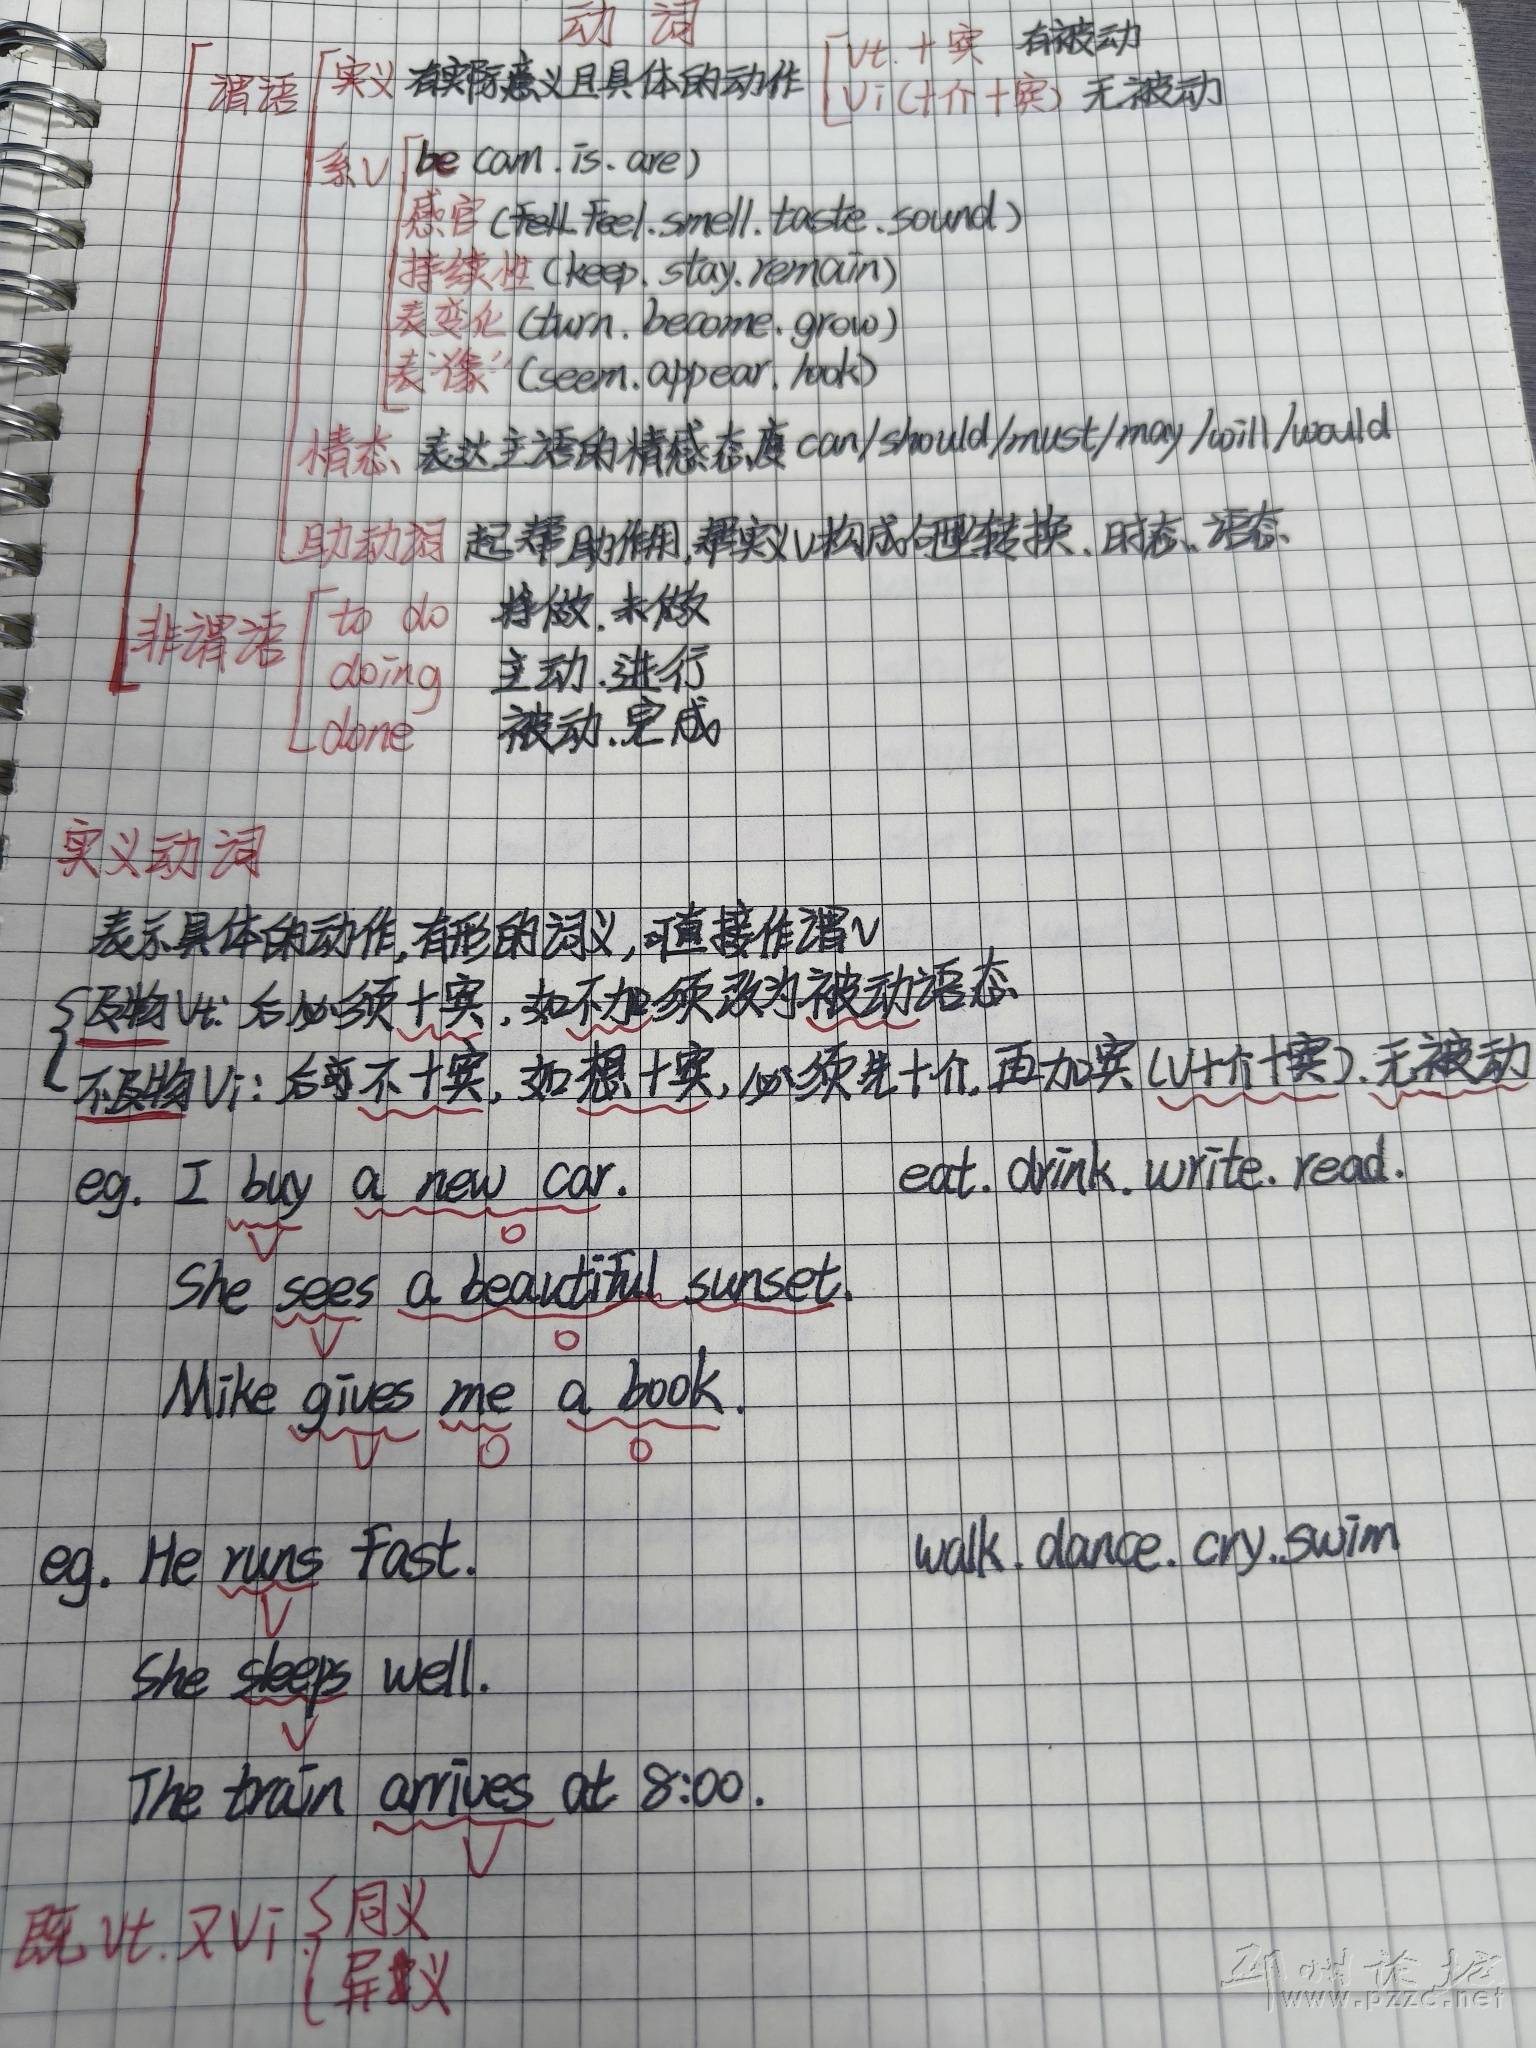 动词
谓语 实义 有实际意义且具体的动作 Vt.+宾 有被动
Vi(+介+宾) 无被动
系V be (am.is.are)
感官(feel.smell.taste.sound)
持续性(keep.stay.remain)
表变化(turn.become.grow)
表"像"(seem.appear.look)
情态 表达主语的情感态度 can/should/must/may/will/would
助动词 起帮助作用,帮实义V构成句型转换、时态、语态
非谓语 to do 将做.未做
doing 主动.进行
done 被动.完成
实义动词
表示具体的动作,有形的词义,可直接作谓V
及物Vt: 后必须+宾,如不加须改为被动语态
不及物Vi: 后可不+宾,如想+宾,必须先+介,再加宾(V+介+宾).无被动
eg. I buy a new car. eat. drink. write. read.
V O
She sees a beautiful sunset.
V O
Mike gives me a book.
V O O
eg. He runs fast. walk. dance. cry. swim
V
She sleeps well.
V
The train arrives at 8:00.
V
既Vt.又Vi 同义
异义
邳州论坛
www.pzzc.net